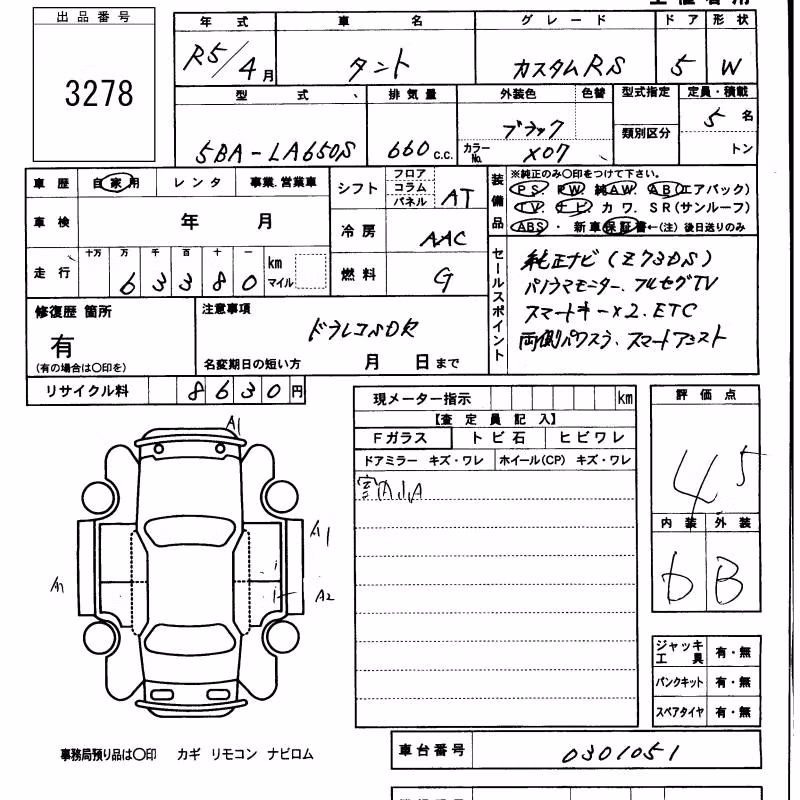 出品番号
3278
年式
車名
グレード
ドア
形状
R5/4月
タント
カスタムRS
5
W
型式
排気量
外装色
色替
型式指定
定員・積載
5BA-LA650S
660 c.c.
ブラック
カラーNo. X07
類別区分
5名
トン
車歴
自家用
レンタ
事業.営業車
シフト
フロア
コラム
パネル
AT
装備品
※純正のみ〇印をつけて下さい。
P.S. P.W. 純A.W. A.B(エアバック)
T.V. ナビ カワ. S R (サンルーフ)
A B S・新車保証書←(注)後日送りのみ
車検
年 月
冷房
AAC
走行
十万 万 千 百 十 一
63380
km
マイル
燃料
G
セールスポイント
純正ナビ(Z73DS)
パノラマモニター、フルセグTV
スマートキー×2、ETC
両側パワスラ、スマートアシスト
修復歴 箇所
有
(有の場合は〇印を)
注意事項
ドラレコルDR
名変期日の短い方 月 日まで
リサイクル料
8630円
現メーター指示
km
【査定員記入】
Fガラス
トビ石
ヒビワレ
ドアミラー キズ・ワレ
ホイール(CP) キズ・ワレ
評価点
4.5
内装
外装
b
B
A1
A1
A1
A2
ジャッキ工具 有・無
パンクキット 有・無
スペアタイヤ 有・無
事務局預り品は〇印 カギ リモコン ナビロム
車台番号
0301051